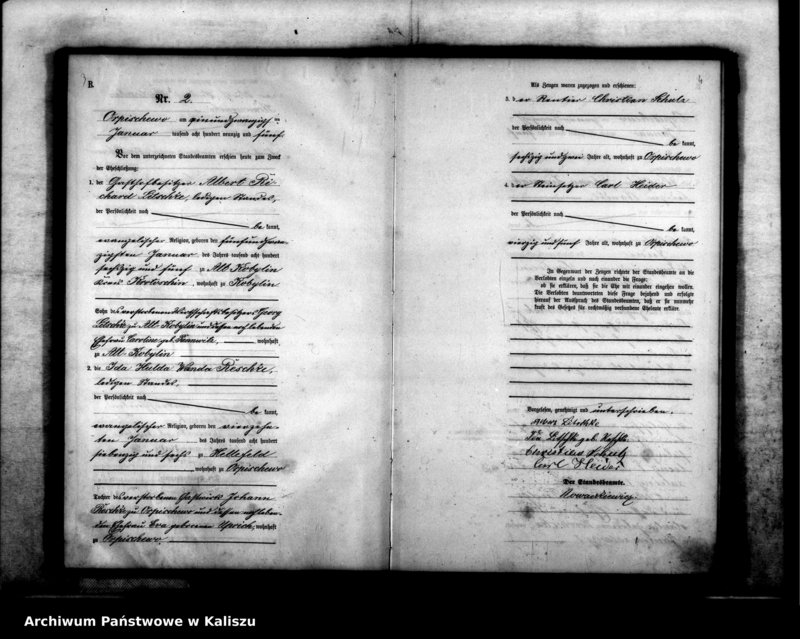 B.
Nr. 2.
Ospischewo am einundzwanzigsten
Januar tausend acht hundert neunzig und fünf.
Vor dem unterzeichneten Standesbeamten erschien heute zum Zweck
der Eheschließung:
1. der Gasthofbesitzer Albert Ri-
chard Litschke, ledigen Standes,
der Persönlichkeit nach
be kannt,
evangelischer Religion, geboren den fünfundzwan-
zigsten Januar des Jahres tausend acht hundert
sechszig und fünf zu Alt Kobylin
Kreis Krotoschin, wohnhaft zu Kobylin
Sohn des verstorbenen Wirthschaftsbesitzers Georg
Litschke zu Alt Kobylin und dessen noch lebenden
Ehefrau Caroline geb. wohnhaft
zu Alt Kobylin
2. die Ida Hulda Wanda Reschke,
ledigen Standes.
der Persönlichkeit nach
be kannt,
evangelischer Religion, geboren den vierzehn-
ten Januar des Jahres tausend acht hundert
siebenzig und sechs zu Hellefeld
wohnhaft zu Ospischewo
Tochter des verstorbenen Gastwirth Johann
Reschke zu Ospischewo und dessen noch leben-
den Ehefrau Eva geborene wohnhaft
zu Ospischewo
Als Zeugen waren zugezogen und erschienen:
3. der Rentier Christian Schulz
der Persönlichkeit nach
be kannt,
sechszig und zwei Jahre alt, wohnhaft zu Ospischewo
4. der Steinsetzer Carl Heider
der Persönlichkeit nach
be kannt,
vierzig und fünf Jahre alt, wohnhaft zu Ospischewo
In Gegenwart der Zeugen richtete der Standesbeamte an die
Verlobten einzeln und nach einander die Frage:
ob sie erklären, daß sie die Ehe mit einander eingehen wollen.
Die Verlobten beantworteten diese Frage bejahend und erfolgte
hierauf der Ausspruch des Standesbeamten, daß er sie nunmehr
kraft des Gesetzes für rechtmäßig verbundene Eheleute erkläre.
Vorgelesen, genehmigt und unterschrieben.
Albert Litschke
Ida Litschke geb. Reschke
Christian Schulz
Carl Heider
Der Standesbeamte.
Nowackiewicz
Archiwum Państwowe w Kaliszu